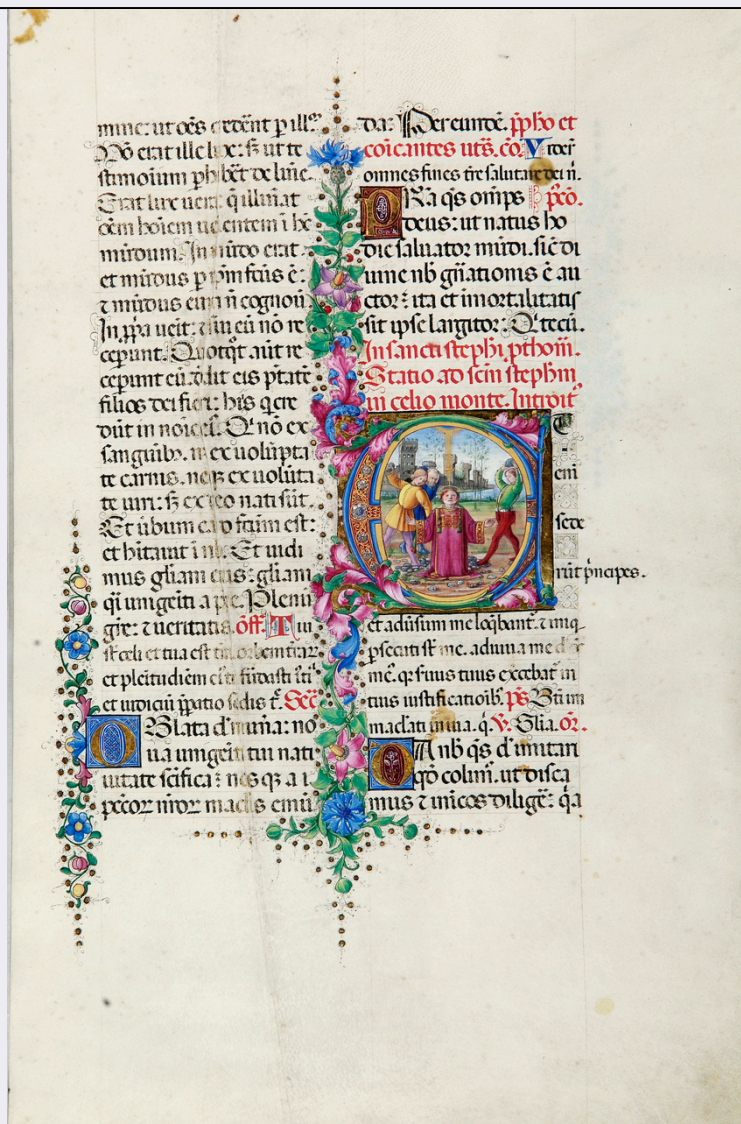 mine: ut oēs c̄dēnt p illū.
Nō erat ille lux: s; ut te
stimonium phibēt de lumē.
Erat lux uera q̄ illūīat
oēm hoīem uenientem ī hc̄
mūdum. In mūdo erat
et mūdus p ipm fcūs ē:
⁊ mūdus eum ñ cognouı̄
In ꝓpa ueīt: ⁊ sui eū nō re
ceperunt. Quotq̄t aūt re
ceperunt eū. dedit eis ptātē
filios dei fieri: his q̄ cre
dūt in noīe eius. Q̄ nō ex
sanguib;. neq; ex uolūpta
te carnis. neq; ex uolūta
te uiri: s; ex deo nati sūt.
Et ūbum caro fcūm est:
et hītauit ī nb. Et uidi
mus gl̄iam eius: gl̄iam
q̄i unigeīti a pr̄e. Plenū
gr̄e: ⁊ ueritatis. off. Tui
sr̄ celi et tua est tr̄a. orbem trar;
et pleītudiem eius tu fūdasti iūsti
et iudiciū ꝓpatio sedis t̄. Sec̄
Oblata d. mūna: no
ua unigeīti tui nati
uitate scīfica: nosq; a
pccor nror̄ maclis emū
da: Per eundē. p̄pho et
coīcantes uts. co. Vider̄
omnes fines tr̄e salutare dei n̄.
PRa q̄s om̄ps pc̄o.
deus: ut natus ho
die saluator mūdi. sic̄ di
uine nb gn̄ationis ē au
ctor: ita et imortalitatis
sit ipse largitor: Q̄ tecū.
In sancti stephī pthom̄.
Statio ad scm̄ stephm̄
in celio monte. Introit̄
ET
enī
sede
rūt p̄ncipes.
et adūsum me loq̄bant̄. ⁊ iniq̄
psecuti st̄ me. adiuua me
me. q̄ suus tuus excebat̄ in
tuis iustificatioīb;. ps Bt̄i im
maclati in uia. q̄. V. Glia. or̄.
DA nb q̄s d. imitari
qd̄ colim;. ut disca
mus ⁊ inīcos dilige: q̄a